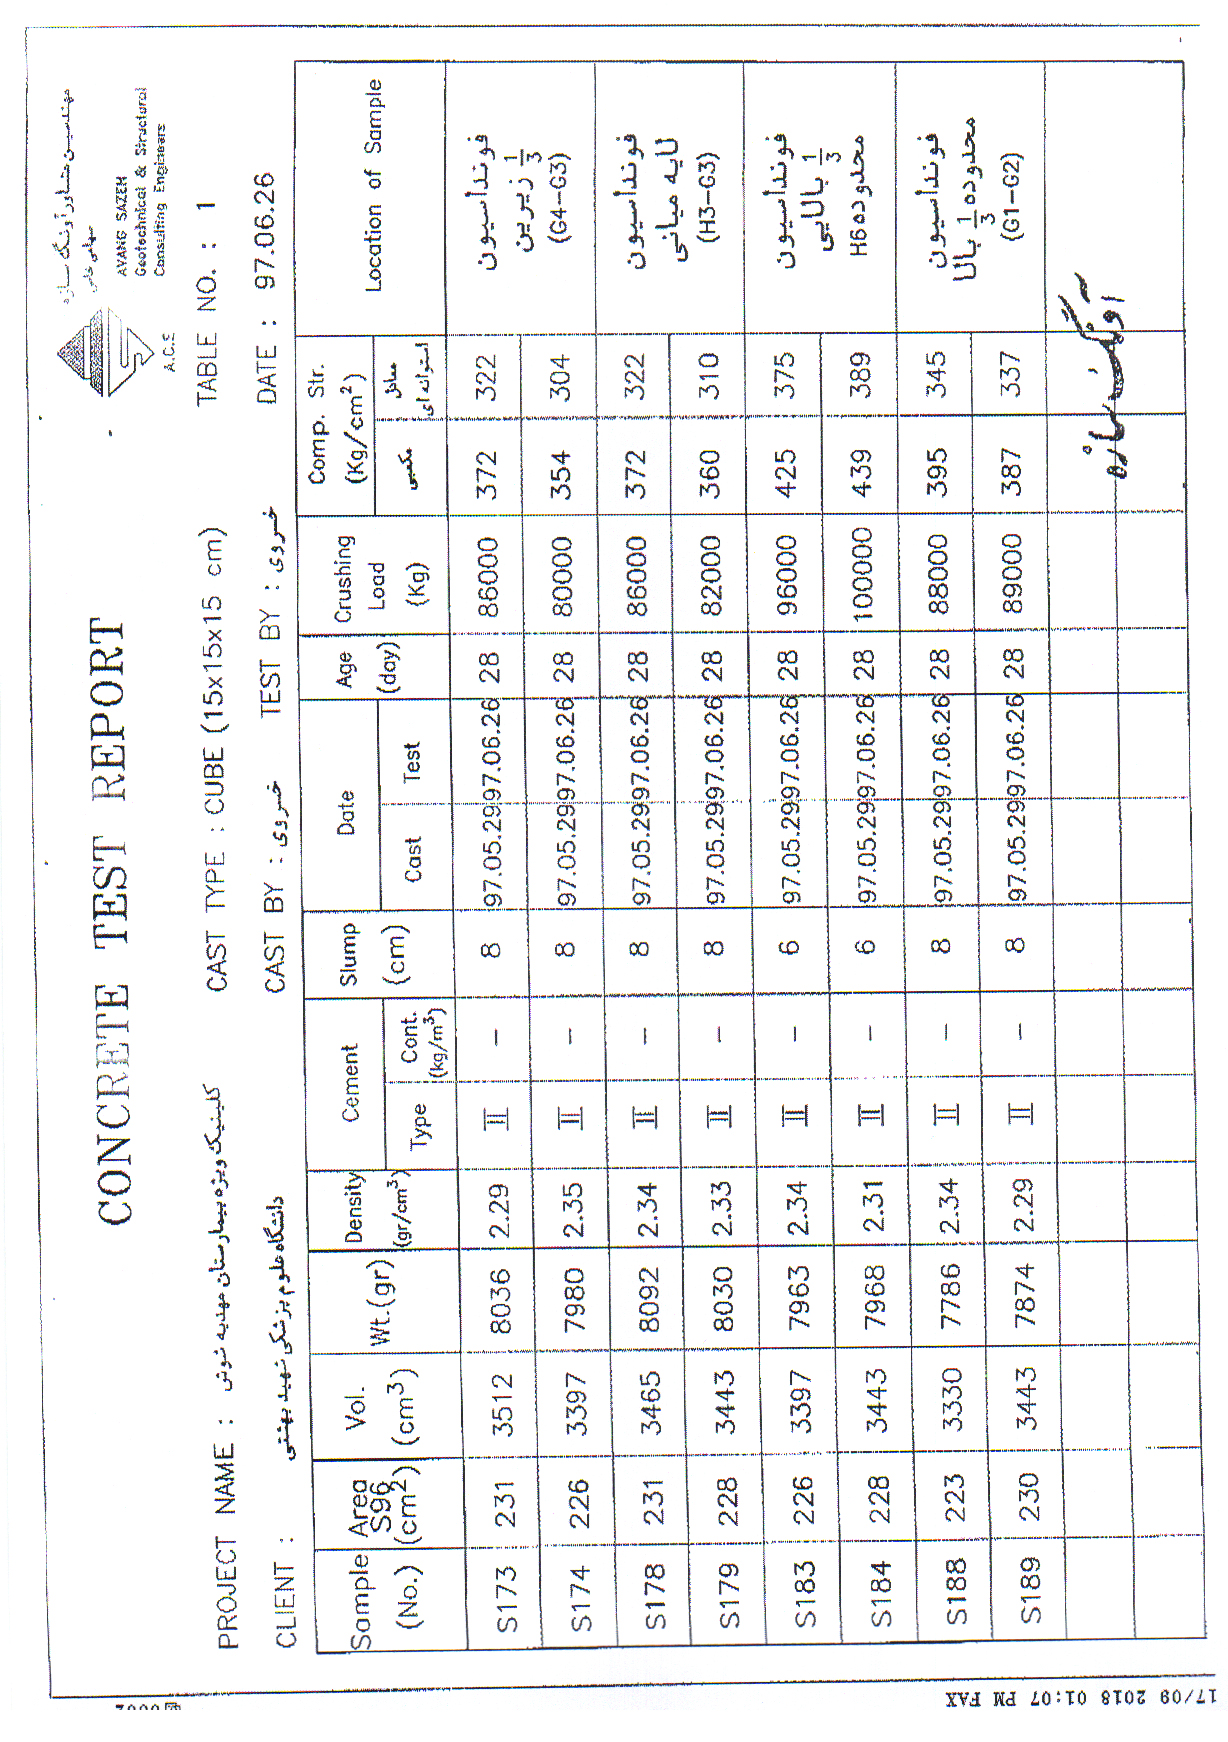 CONCRETE TEST REPORT
مهندسین مشاور آونگ سازه
سهامی خاص
AVANG SAZEH
Geotechnical & Structural
Consulting Engineers
A.C.E
PROJECT NAME : کلینیک ویژه بیمارستان مهدیه شوش
CAST TYPE : CUBE (15x15x15 cm)
TABLE NO. : 1
CLIENT : دانشگاه علوم پزشکی شهید بهشتی
CAST BY : خسروی
TEST BY : خسروی
DATE : 97.06.26
Sample (No.) Area S96 (cm²) Vol. (cm³) Wt.(gr) Density (gr/cm³) Cement Slump (cm) Date Age (day) Crushing Load (Kg) Comp. Str. (Kg/cm²) Location of Sample
Type Cont. (kg/m³) Cast Test مکعبی معادل استوانه ای
S173 231 3512 8036 2.29 II – 8 97.05.29 97.06.26 28 86000 372 322
S174 226 3397 7980 2.35 II – 8 97.05.29 97.06.26 28 80000 354 304
فونداسیون
1/3 زیرین
(G4–G3)
S178 231 3465 8092 2.34 II – 8 97.05.29 97.06.26 28 86000 372 322
S179 228 3443 8030 2.33 II – 8 97.05.29 97.06.26 28 82000 360 310
فونداسیون
لایه میانی
(H3–G3)
S183 226 3397 7963 2.34 II – 6 97.05.29 97.06.26 28 96000 425 375
S184 228 3443 7968 2.31 II – 6 97.05.29 97.06.26 28 100000 439 389
فونداسیون
1/3 بالایی
محدوده H6
S188 223 3330 7786 2.34 II – 8 97.05.29 97.06.26 28 88000 395 345
S189 230 3443 7874 2.29 II – 8 97.05.29 97.06.26 28 89000 387 337
فونداسیون
محدوده 1/3 بالا
(G1–G2)
آونگ سازه
17/09 2018 01:07 PM FAX